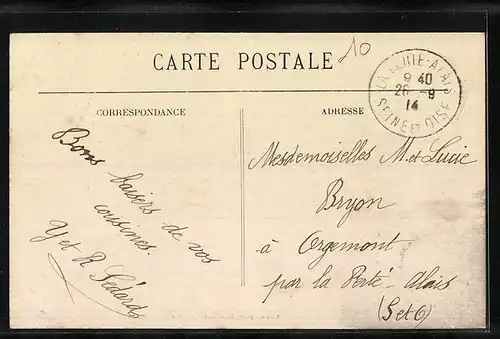 CARTE POSTALE
10
LA FERTE-ALAIS
9 40
26 -9
14
SEINE ET OISE
CORRESPONDANCE
ADRESSE
Bons
baisers de vos
cousines.
Y et R Gédard
Mesdemoiselles M. et Lucie
Bryon
à Orgemont
par la Ferté-Alais
(S et O)